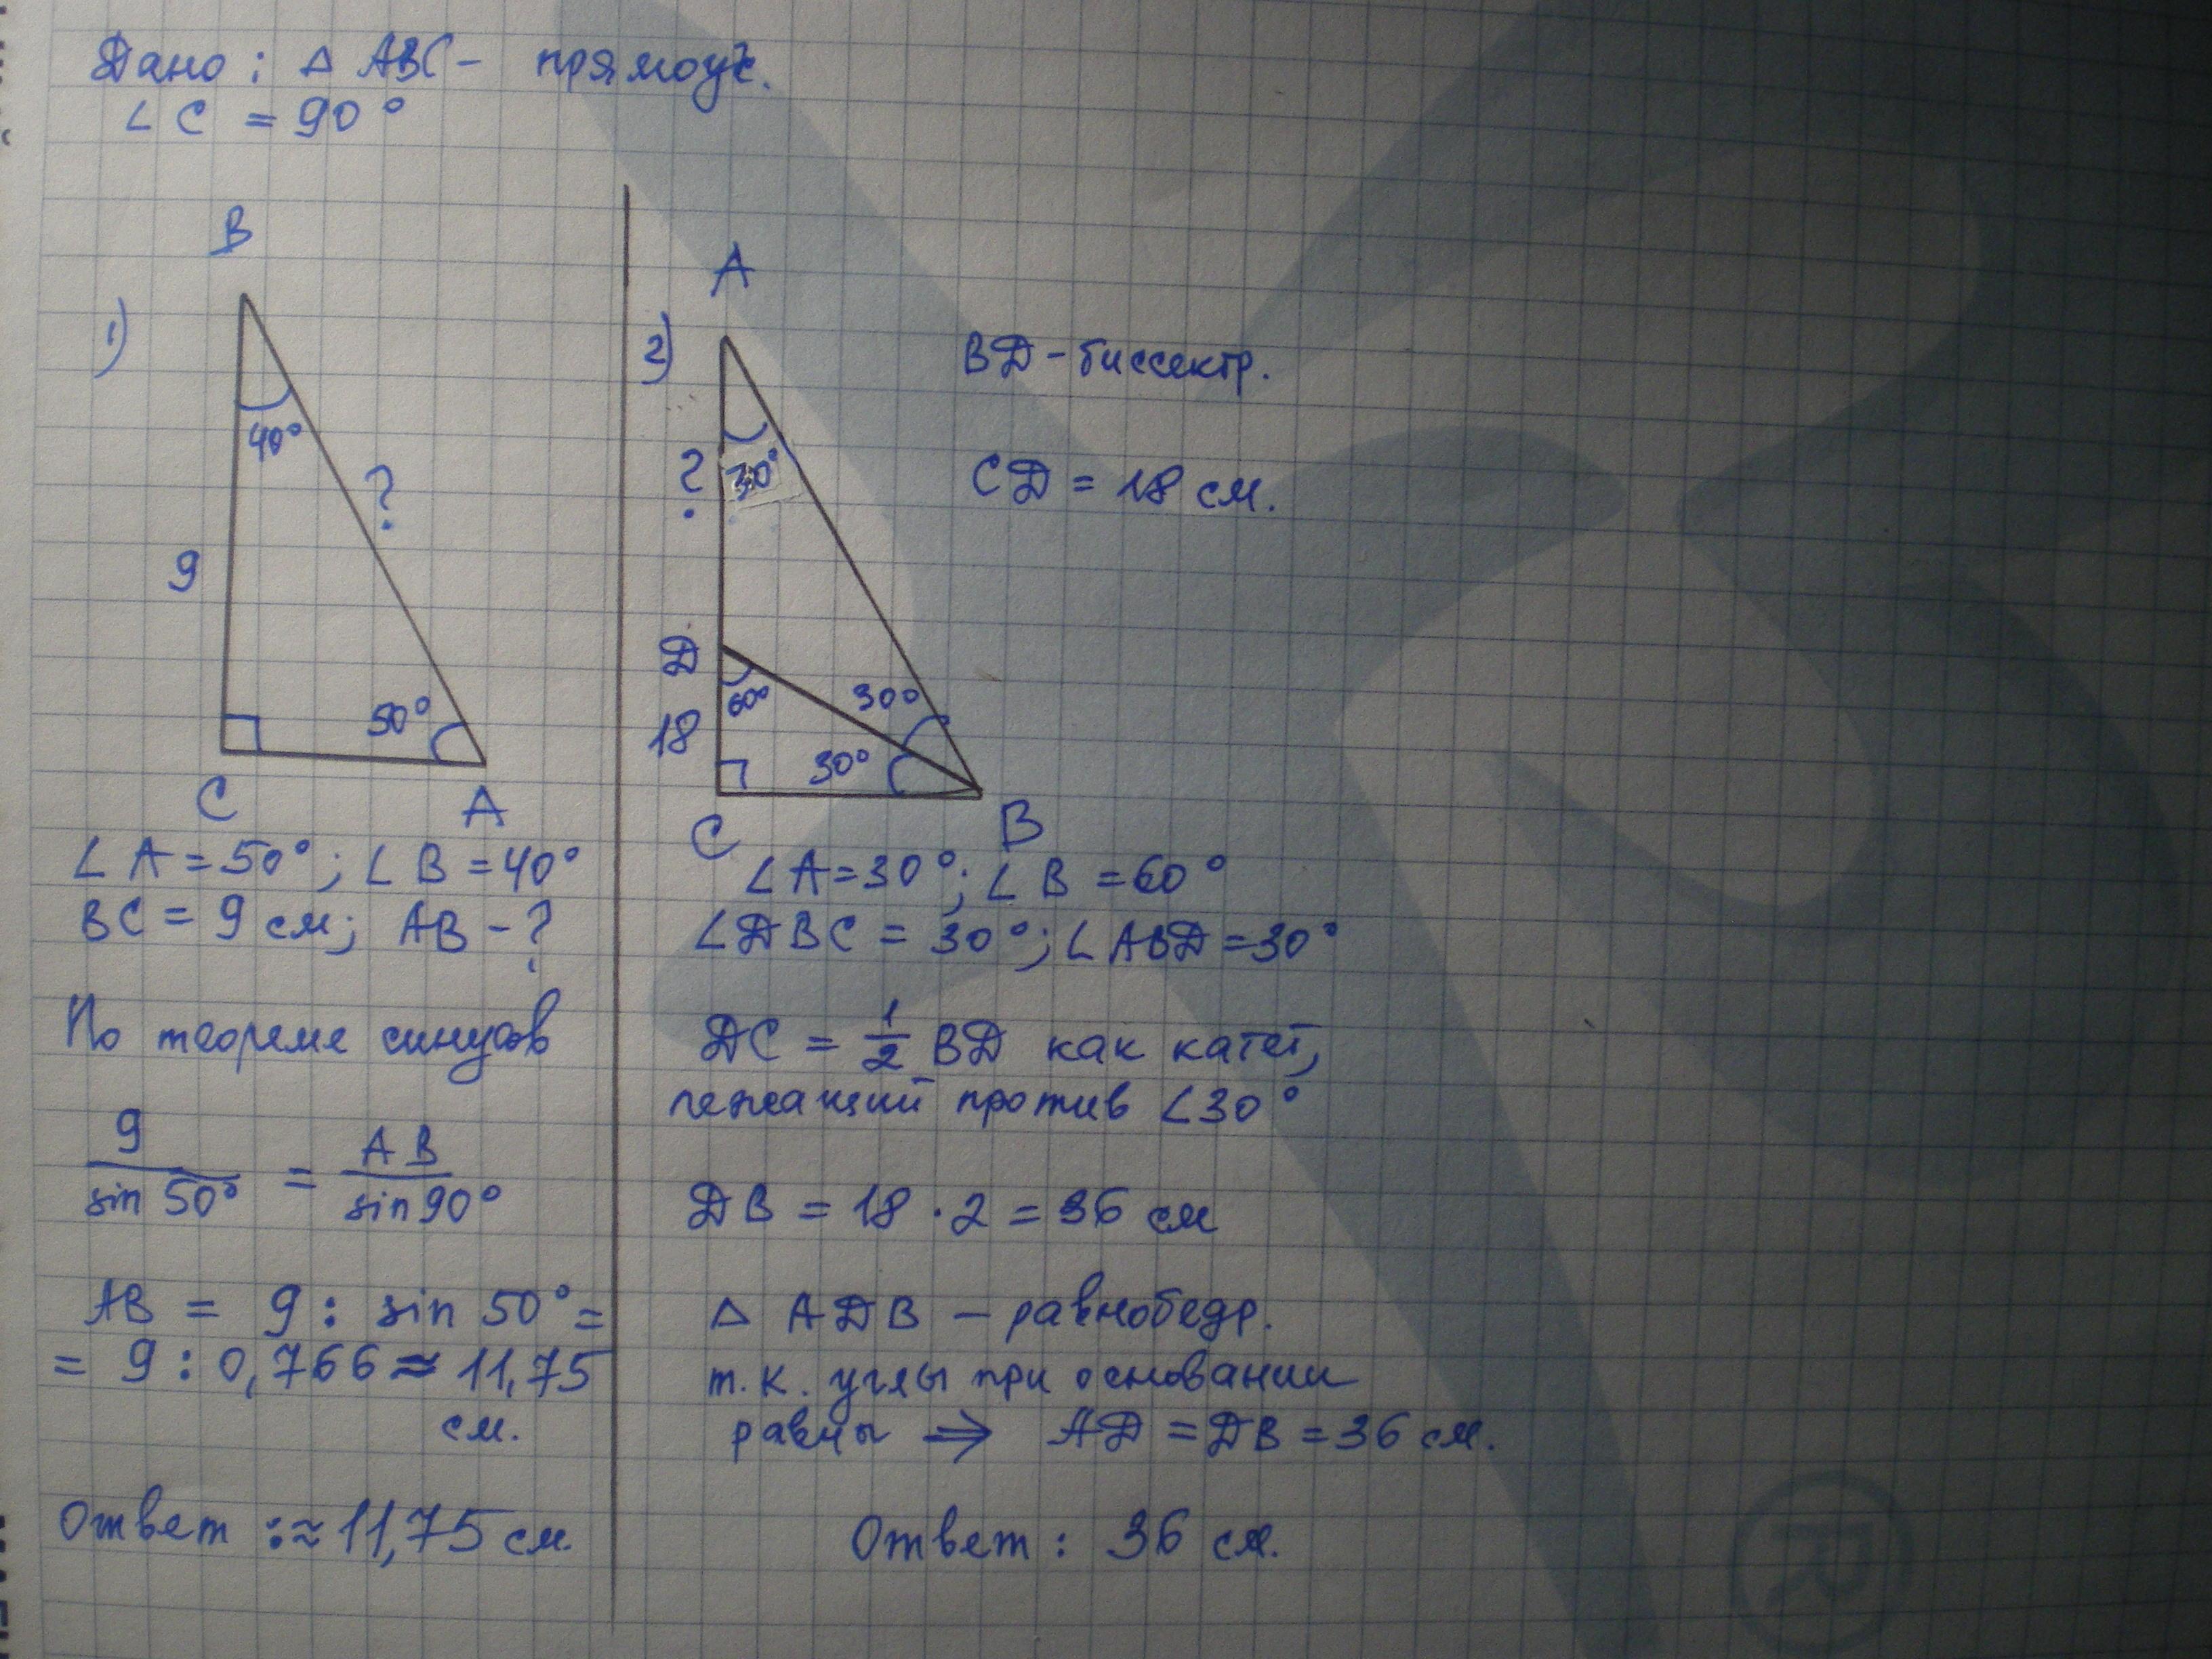 Дано: △ ABC - прямоуг.
∠ C = 90°
1)
B
40°
?
9
50°
C
A
∠ A = 50°; ∠ B = 40°
BC = 9 см; AB - ?
По теореме синусов
9/sin 50° = AB/sin 90°
AB = 9 : sin 50° =
= 9 : 0,766 ≈ 11,75
см.
Ответ : ≈ 11,75 см.
2)
A
BD - биссектр.
CD = 18 см.
?
30°
D
60°
30°
18
30°
C
B
∠ A = 30°; ∠ B = 60°
∠ DBC = 30°; ∠ ABD = 30°
DC = 1/2 BD как катет,
лежащий против ∠30°
DB = 18 · 2 = 36 см
△ ADB - равнобедр.
т.к. углы при основании
равны ⇒ AD = DB = 36 см.
Ответ : 36 см.
®